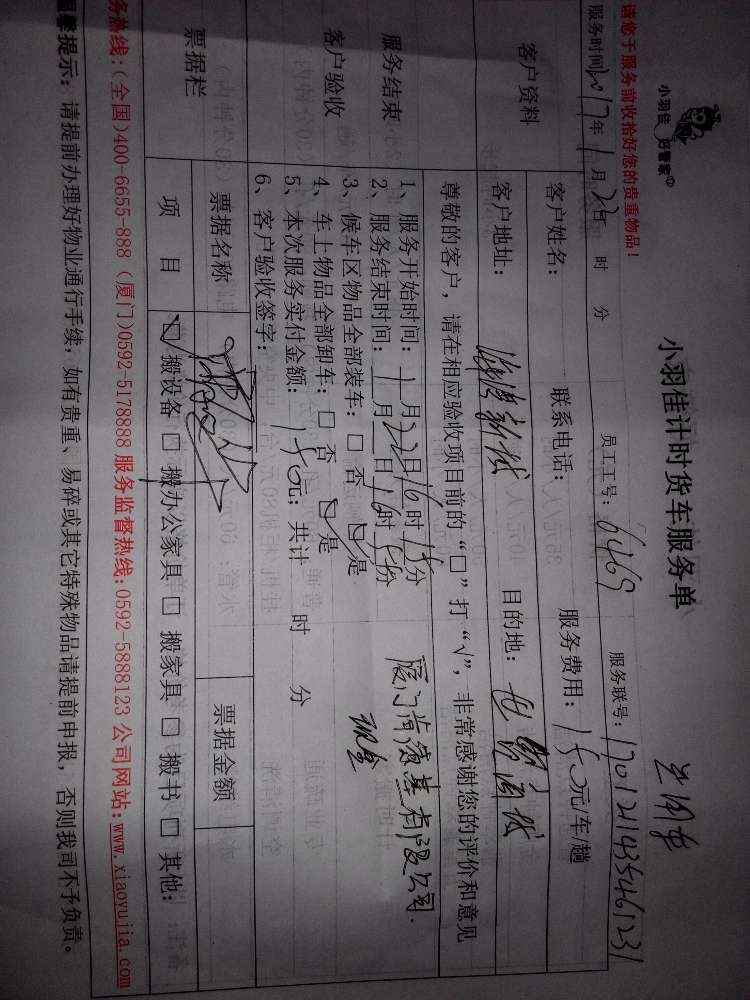 小羽佳 好管家
小羽佳计时货车服务单
请您于服务前收拾好您的贵重物品!
服务时间2017年1月22日 时 分 员工工号: 6469 服务联号: 1701211435461231
客户资料
客户姓名: 联系电话: 服务费用: 150元/车/趟
客户地址: 目的地:
尊敬的客户,请在相应验收项目前的“□”打“√”,非常感谢您的评价和意见
服务结束
客户验收
1、服务开始时间: 1月22日16时15分
2、服务结束时间: 1月 日16时 分
3、候车区物品全部装车: □ 否 ☑ 是
4、车上物品全部卸车: □ 否 ☑ 是
5、本次服务实付金额: 150元; 共计 时 分
6、客户验收签字:
有限公司.
现金
票据栏
票据名称 票据金额
项 目 ☑ 搬设备 □ 搬办公家具 □ 搬家具 □ 搬书 □ 其他:
务热线:(全国)400-6655-888 (厦门)0592-5178888 服务监督热线:0592-5888123 公司网站:www.xiaoyujia.com
温馨提示: 请提前办理好物业通行手续, 如有贵重、易碎或其它特殊物品请提前申报, 否则我司不予负责。